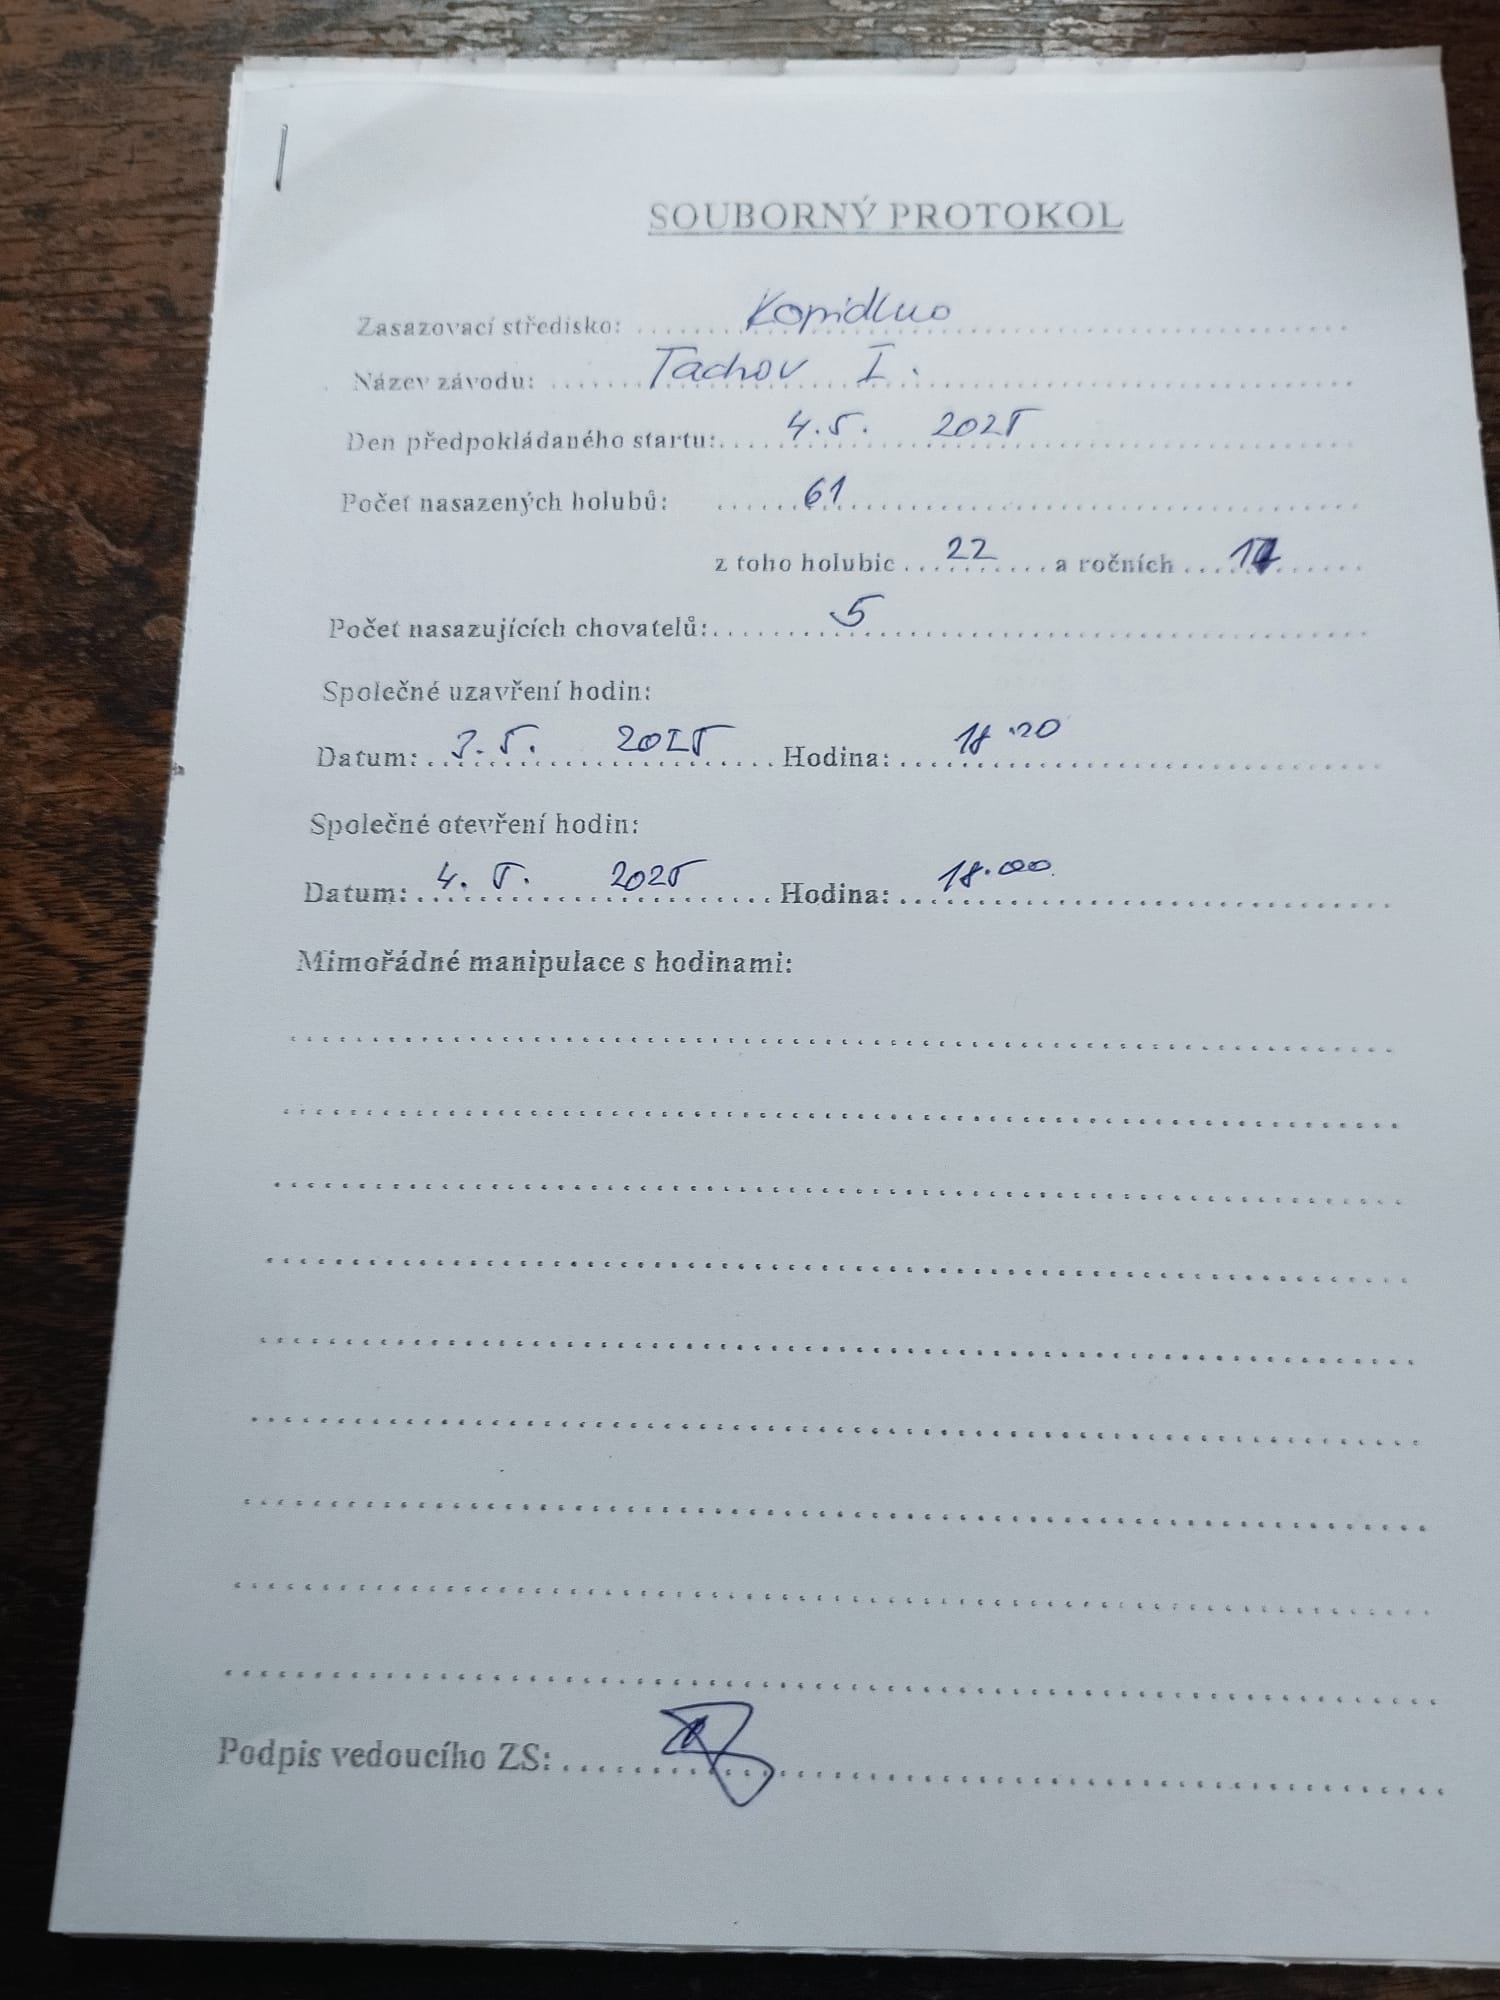 SOUBORNÝ PROTOKOL
Zasazovací středisko: Kopidlno
Název závodu: Tachov I.
Den předpokládaného startu: 4.5. 2025
Počet nasazených holubů: 61
z toho holubic 22 a ročních
Počet nasazujících chovatelů: 5
Společné uzavření hodin:
Datum: 3.5. 2025 Hodina: 18.20
Společné otevření hodin:
Datum: 4.5. 2025 Hodina: 18.00
Mimořádné manipulace s hodinami:
Podpis vedoucího ZS: